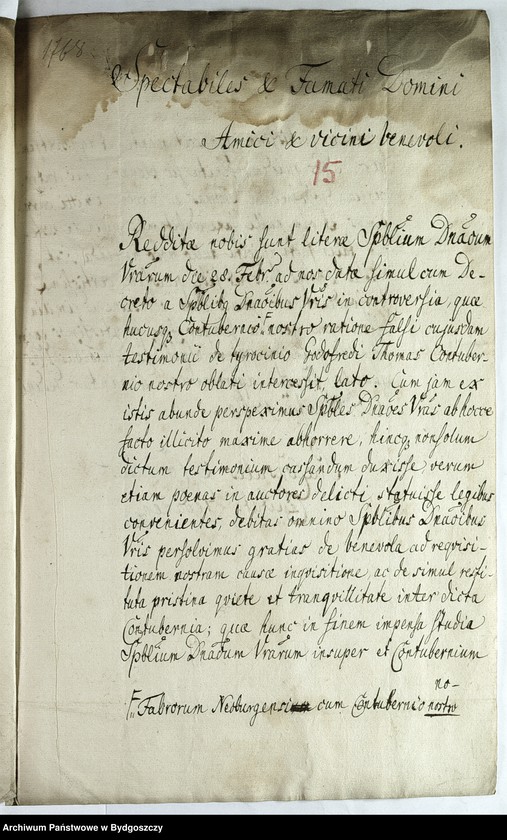 1768
Spectabiles & Famati Domini
Amici & vicini benevoli.
15
Redditæ nobis sunt literæ Spblium Dnaōum
Vrārum die 28. Febr. ad nos datæ simul cum De-
creto a Spblibq Dnaōibus Vrīs in controversia, quæ
hucusq Contubernio F nostro ratione falsi cujusdam
testimonii de tyrocinio Godofredi Thomas Contuber-
nio nostro oblati intercessit, lato. Cum jam ex
istis abunde perspeximus Spbles Dnaōes Vrās ab hocce
facto illicito maxime abhorrere, hincq nonsolum
dictum testimonium cassandum duxisse verum
etiam poenas in auctores delicti statuisse legibus
convenientes, debitas omnino Spblibus Dnaōibus
Vrīs persolvimus gratias de benevola ad reqvisi-
tionem nostram causæ inqvisitione, ac de simul resti-
tuta pristina qviete et tranqvillitate inter dicta
Contubernia; quæ hunc in finem impensa studia
Spblium Dnaōum Vrārum insuper et Contubernium
no-
F Fabrorum Neoburgensi cum Contubernio nostro
Archiwum Państwowe w Bydgoszczy